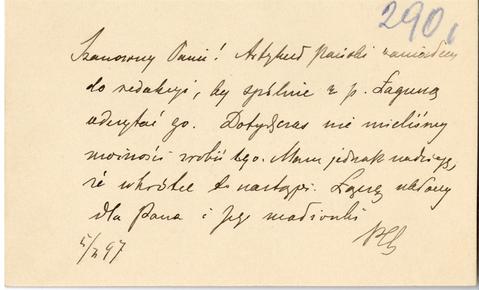 290
Szanowny Panie! Artykuł Pański zaniosłem
do redakcji, by spólnie z p. Łaguną
odczytać go. Dotychczas nie mieliśmy
możności zrobić tego. Mam jednak nadzieję,
że wkrótce to nastąpi. Łączę ukłony
dla Pana i Jego małżonki
5/X 97